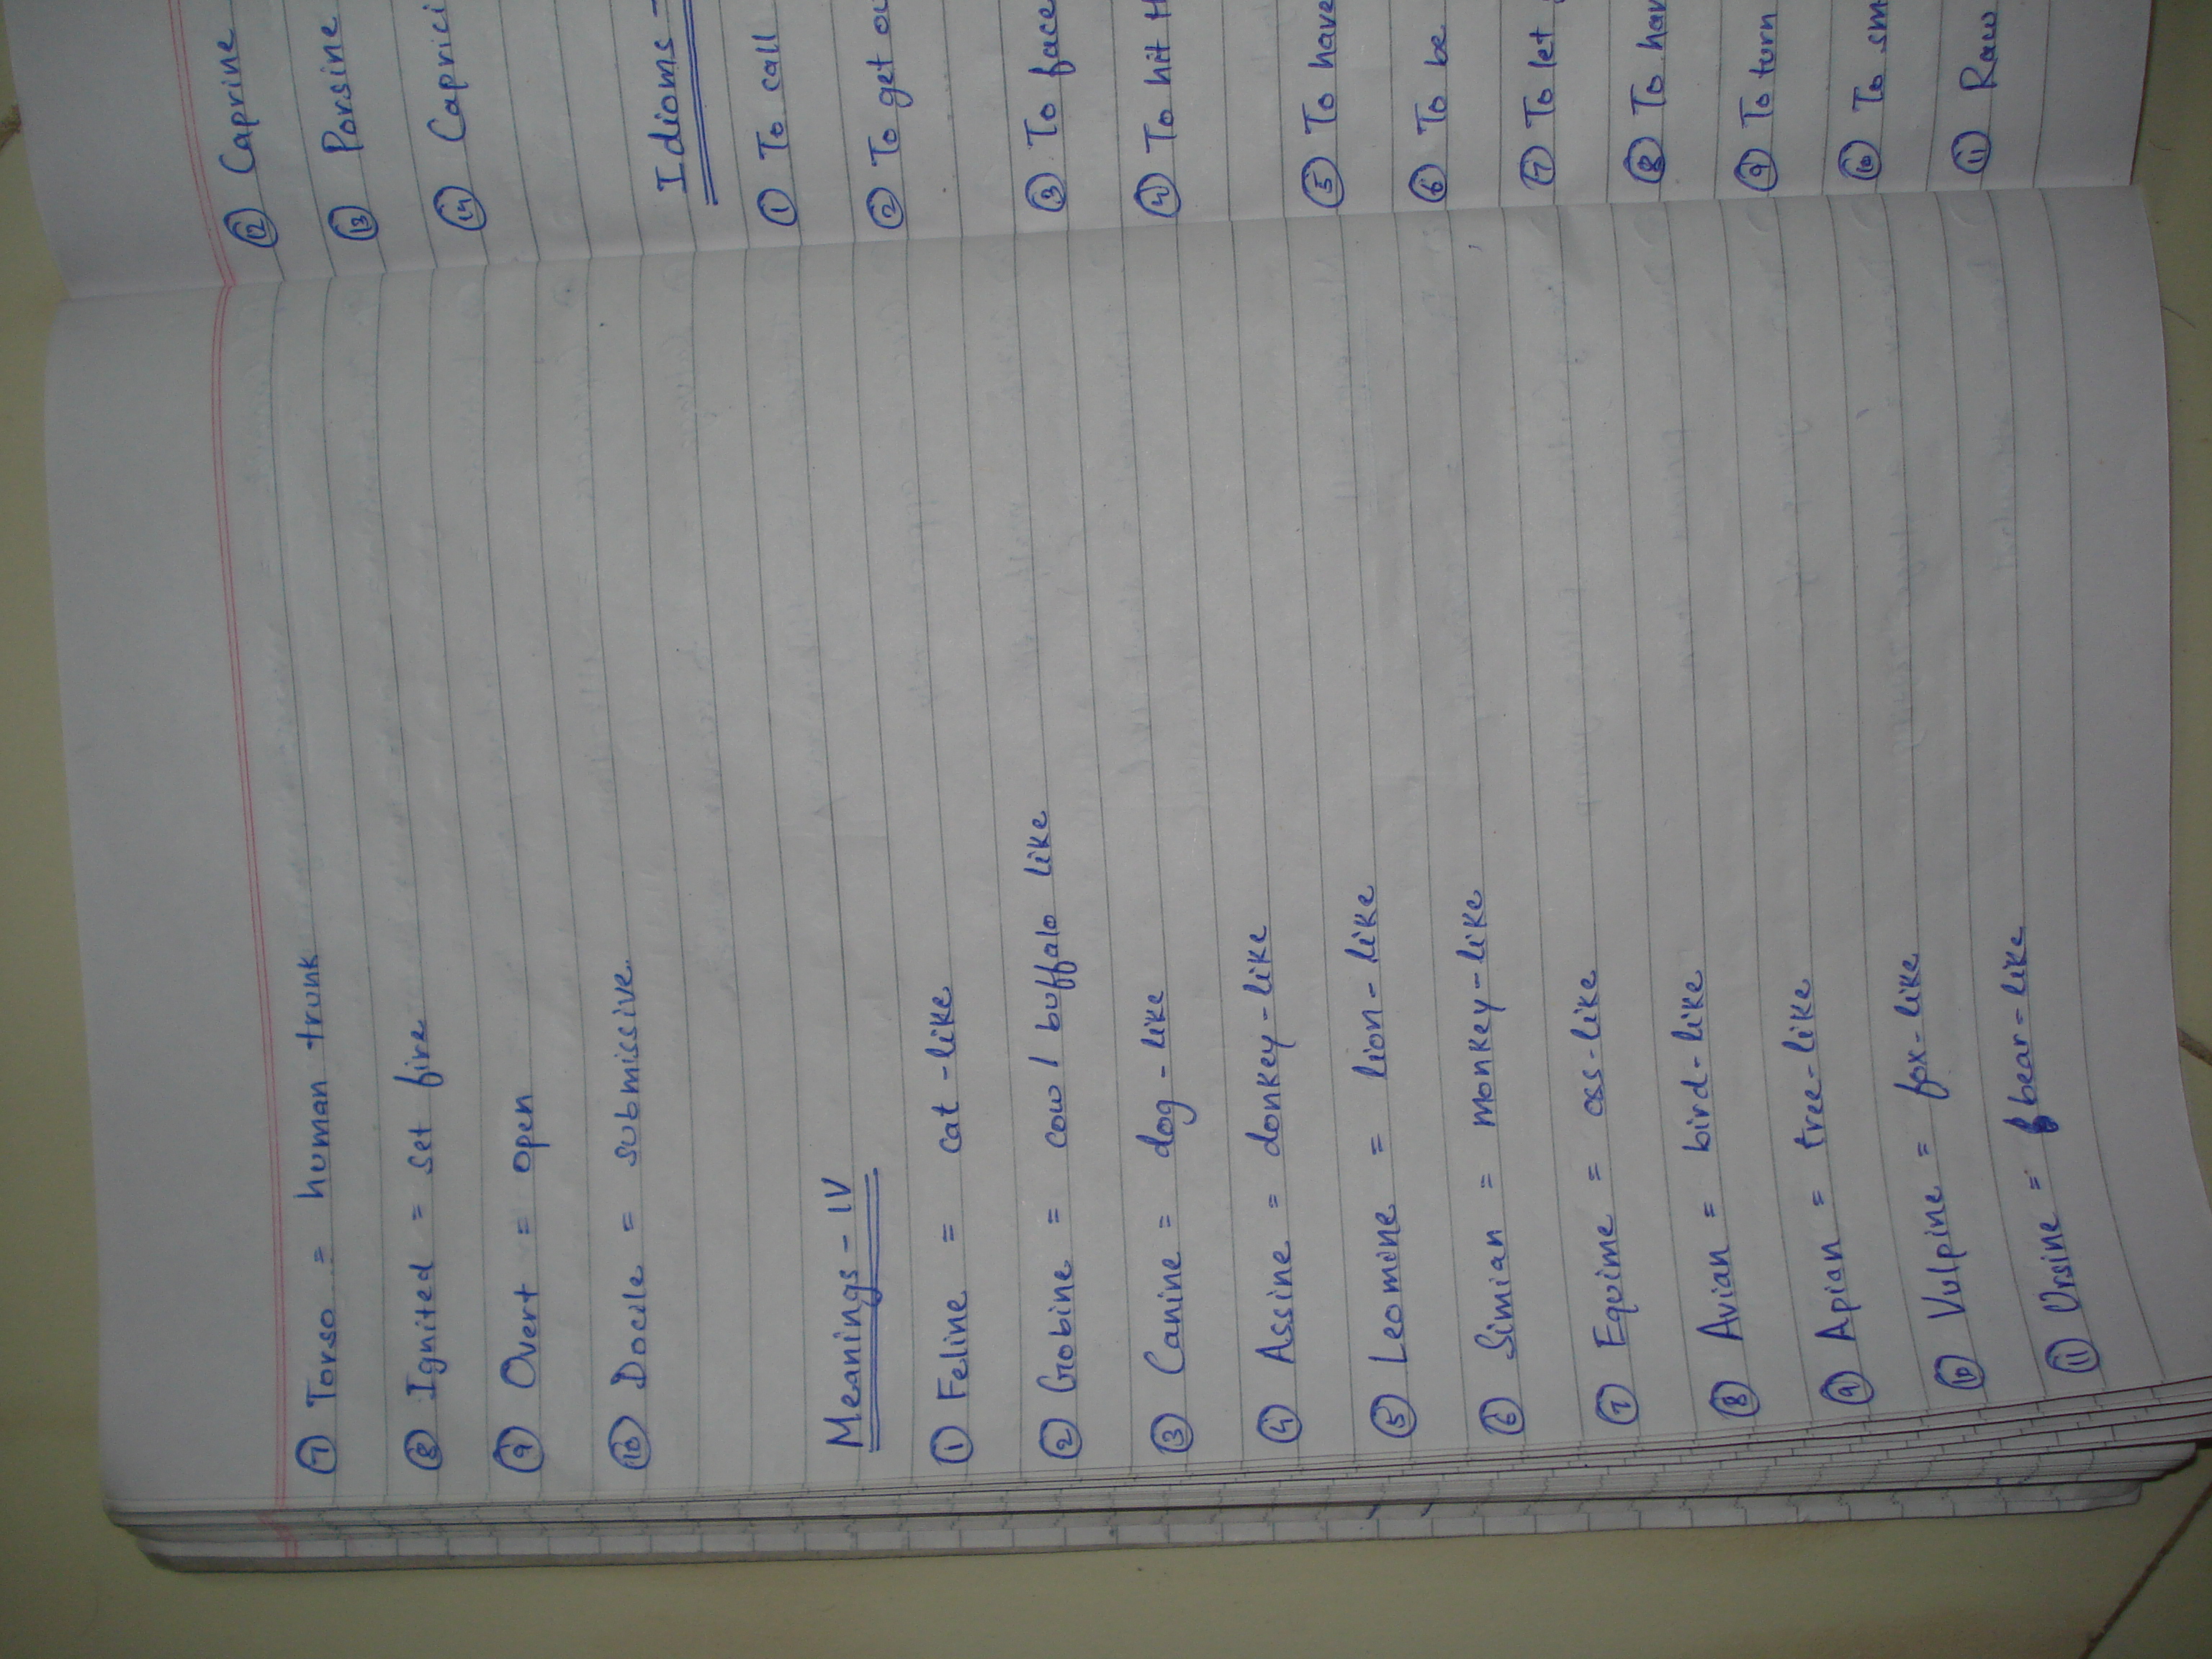 ⑦ Torso = human trunk
⑧ Ignited = set fire
⑨ Overt = open
⑩ Docile = submissive.
Meanings - IV
① Feline = cat-like
② Gobine = cow / buffalo like
③ Canine = dog-like
④ Assine = donkey-like
⑤ Leomine = lion-like
⑥ Simian = monkey-like
⑦ Equine = ass-like
⑧ Avian = bird-like
⑨ Apian = tree-like
⑩ Vulpine = fox-like
⑪ Ursine = bear-like
⑫ Caprine
⑬ Porsine
⑭ Caprici
Idioms -
① To call
② To get ou
③ To face
④ To hit th
⑤ To have
⑥ To be
⑦ To let
⑧ To hav
⑨ To turn
⑩ To sm
⑪ Raw